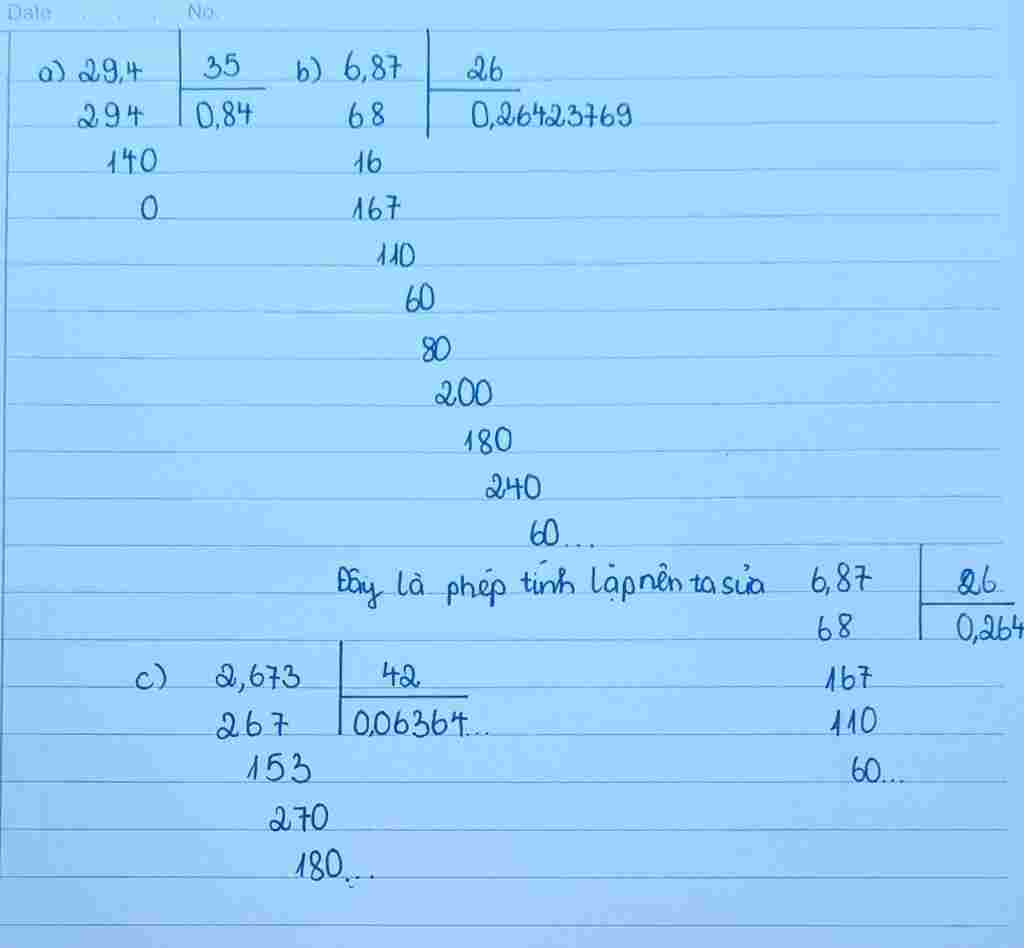 Date . . . No.
a) 29,4 35 b) 6,87 26
294 0,84 68 0,26423769
140 16
0 167
110
60
80
200
180
240
60...
Đây là phép tính lặp nên ta sửa 6,87 26
68 0,264
c) 2,673 42 167
267 0,06364... 110
153 60...
270
180...